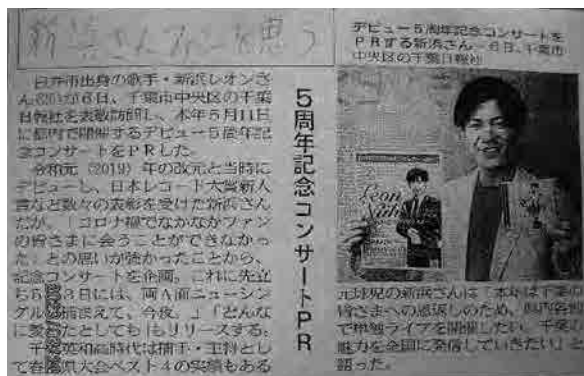 新浜さんファンを思う
5周年記念コンサートPR
白井市出身の歌手・新浜レオンさ
ん が6日、千葉市中央区の千葉
日報社を表敬訪問し、本年5月11日
に都内で開催するデビュー5周年記
念コンサートをPRした。
令和元(2019)年の改元と当時に
デビューし、日本レコード大賞新人
賞など数々の表彰を受けた新浜さん
だが、「コロナ禍でなかなかファン
の皆さまに会うことができなかっ
た」との思いが強かったことから、
記念コンサートを企画。これに先立
ち 3日には、両A面ニューシン
グル 捕まえて、今夜。」「どんな
に としても」もリリースする。
千 英和高時代は捕手・主将とし
て春 県大会ベスト4の実績もある
デビュー5周年記念コンサートを
PRする新浜さん=6日、千葉市
中央区の千葉日報社
Leon
Niih
元球児の新浜さんは「本年は千葉の
皆さまへの恩返しのため、県内各地
で単独ライブを開催したい。千葉の
魅力を全国に発信していきたい」と
語った。